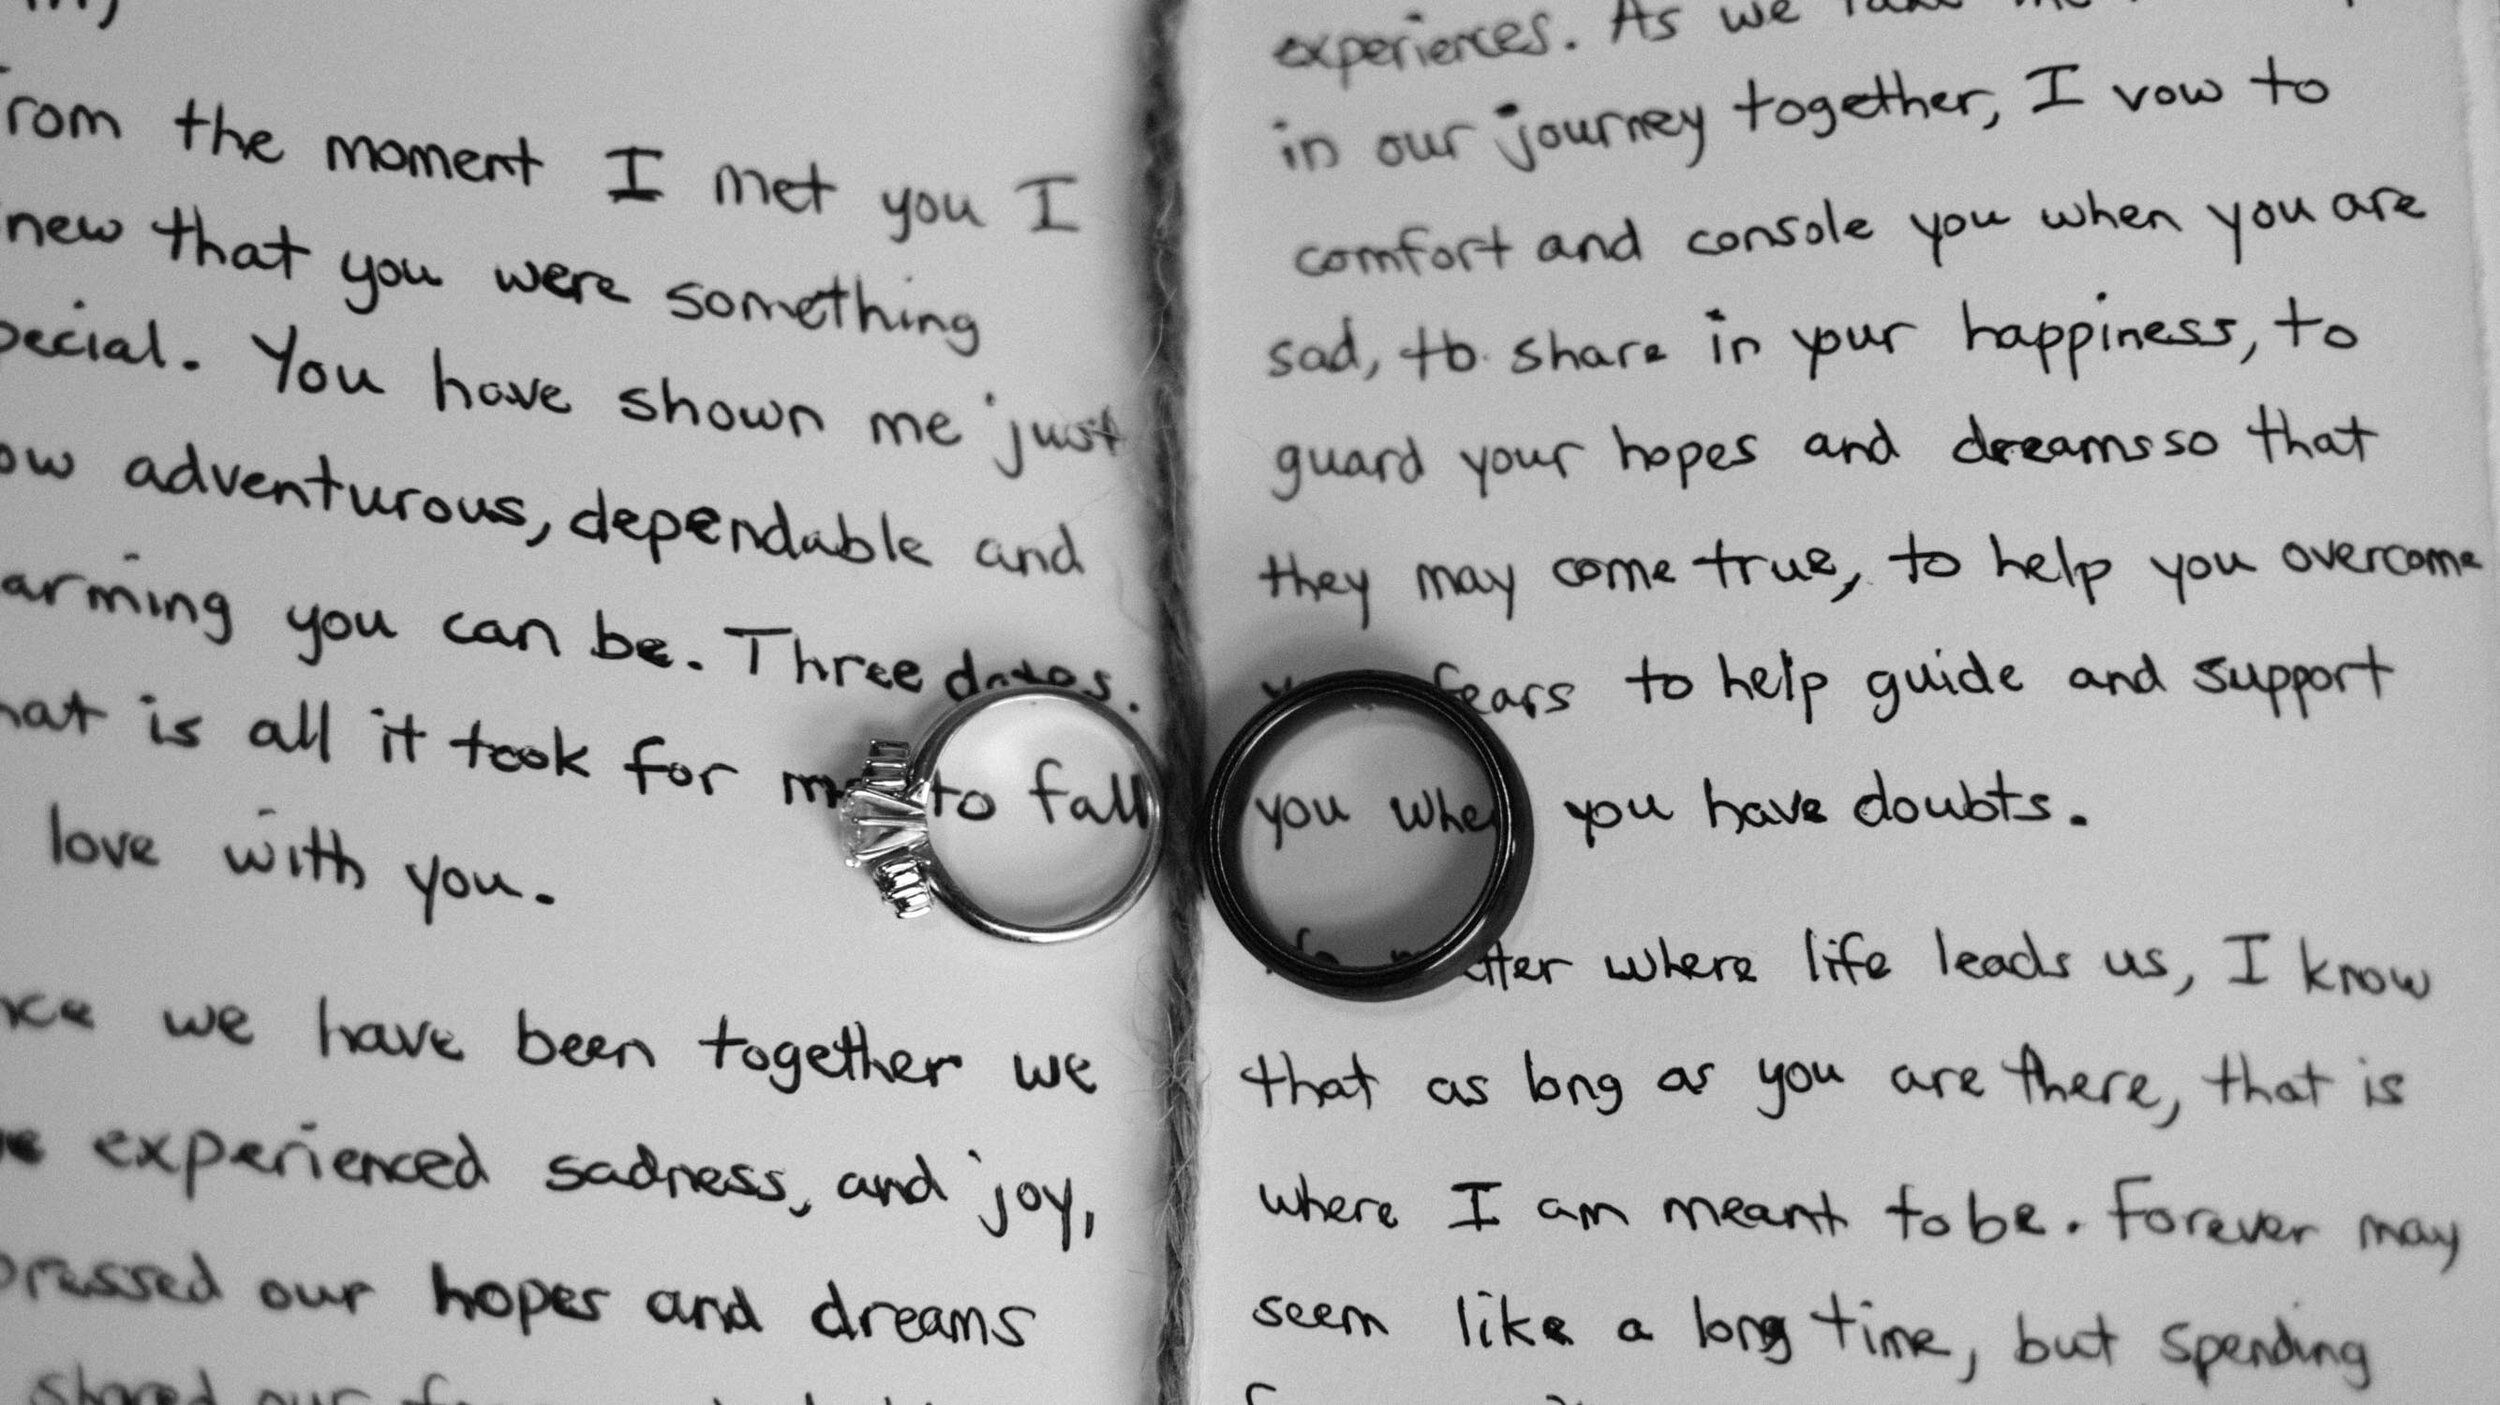 the moment I met you I
that you were something
You have shown me just
adventurous, dependable and
you can be. Three dates.
is all it took for me to fall
love with you.
we have been together we
experienced sadness, and joy,
our hopes and dreams
shared our
experiences. As we
in our journey together, I vow to
comfort and console you when you are
sad, to share in your happiness, to
guard your hopes and dreams so that
they may come true, to help you overcome
fears to help guide and support
you when you have doubts.
No matter where life leads us, I know
that as long as you are there, that is
where I am meant to be. Forever may
seem like a long time, but spending